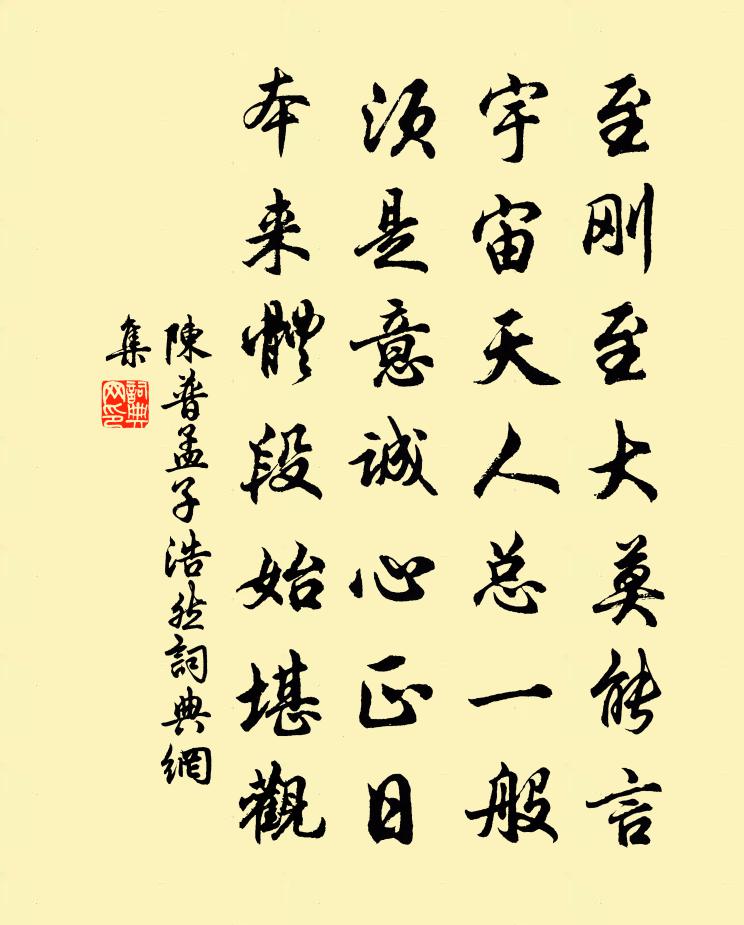 至刚至大莫能言
宇宙天人总一般
须是意诚心正日
本来體段始堪觀
陳普孟子浩然詞典網
集
詞典網印